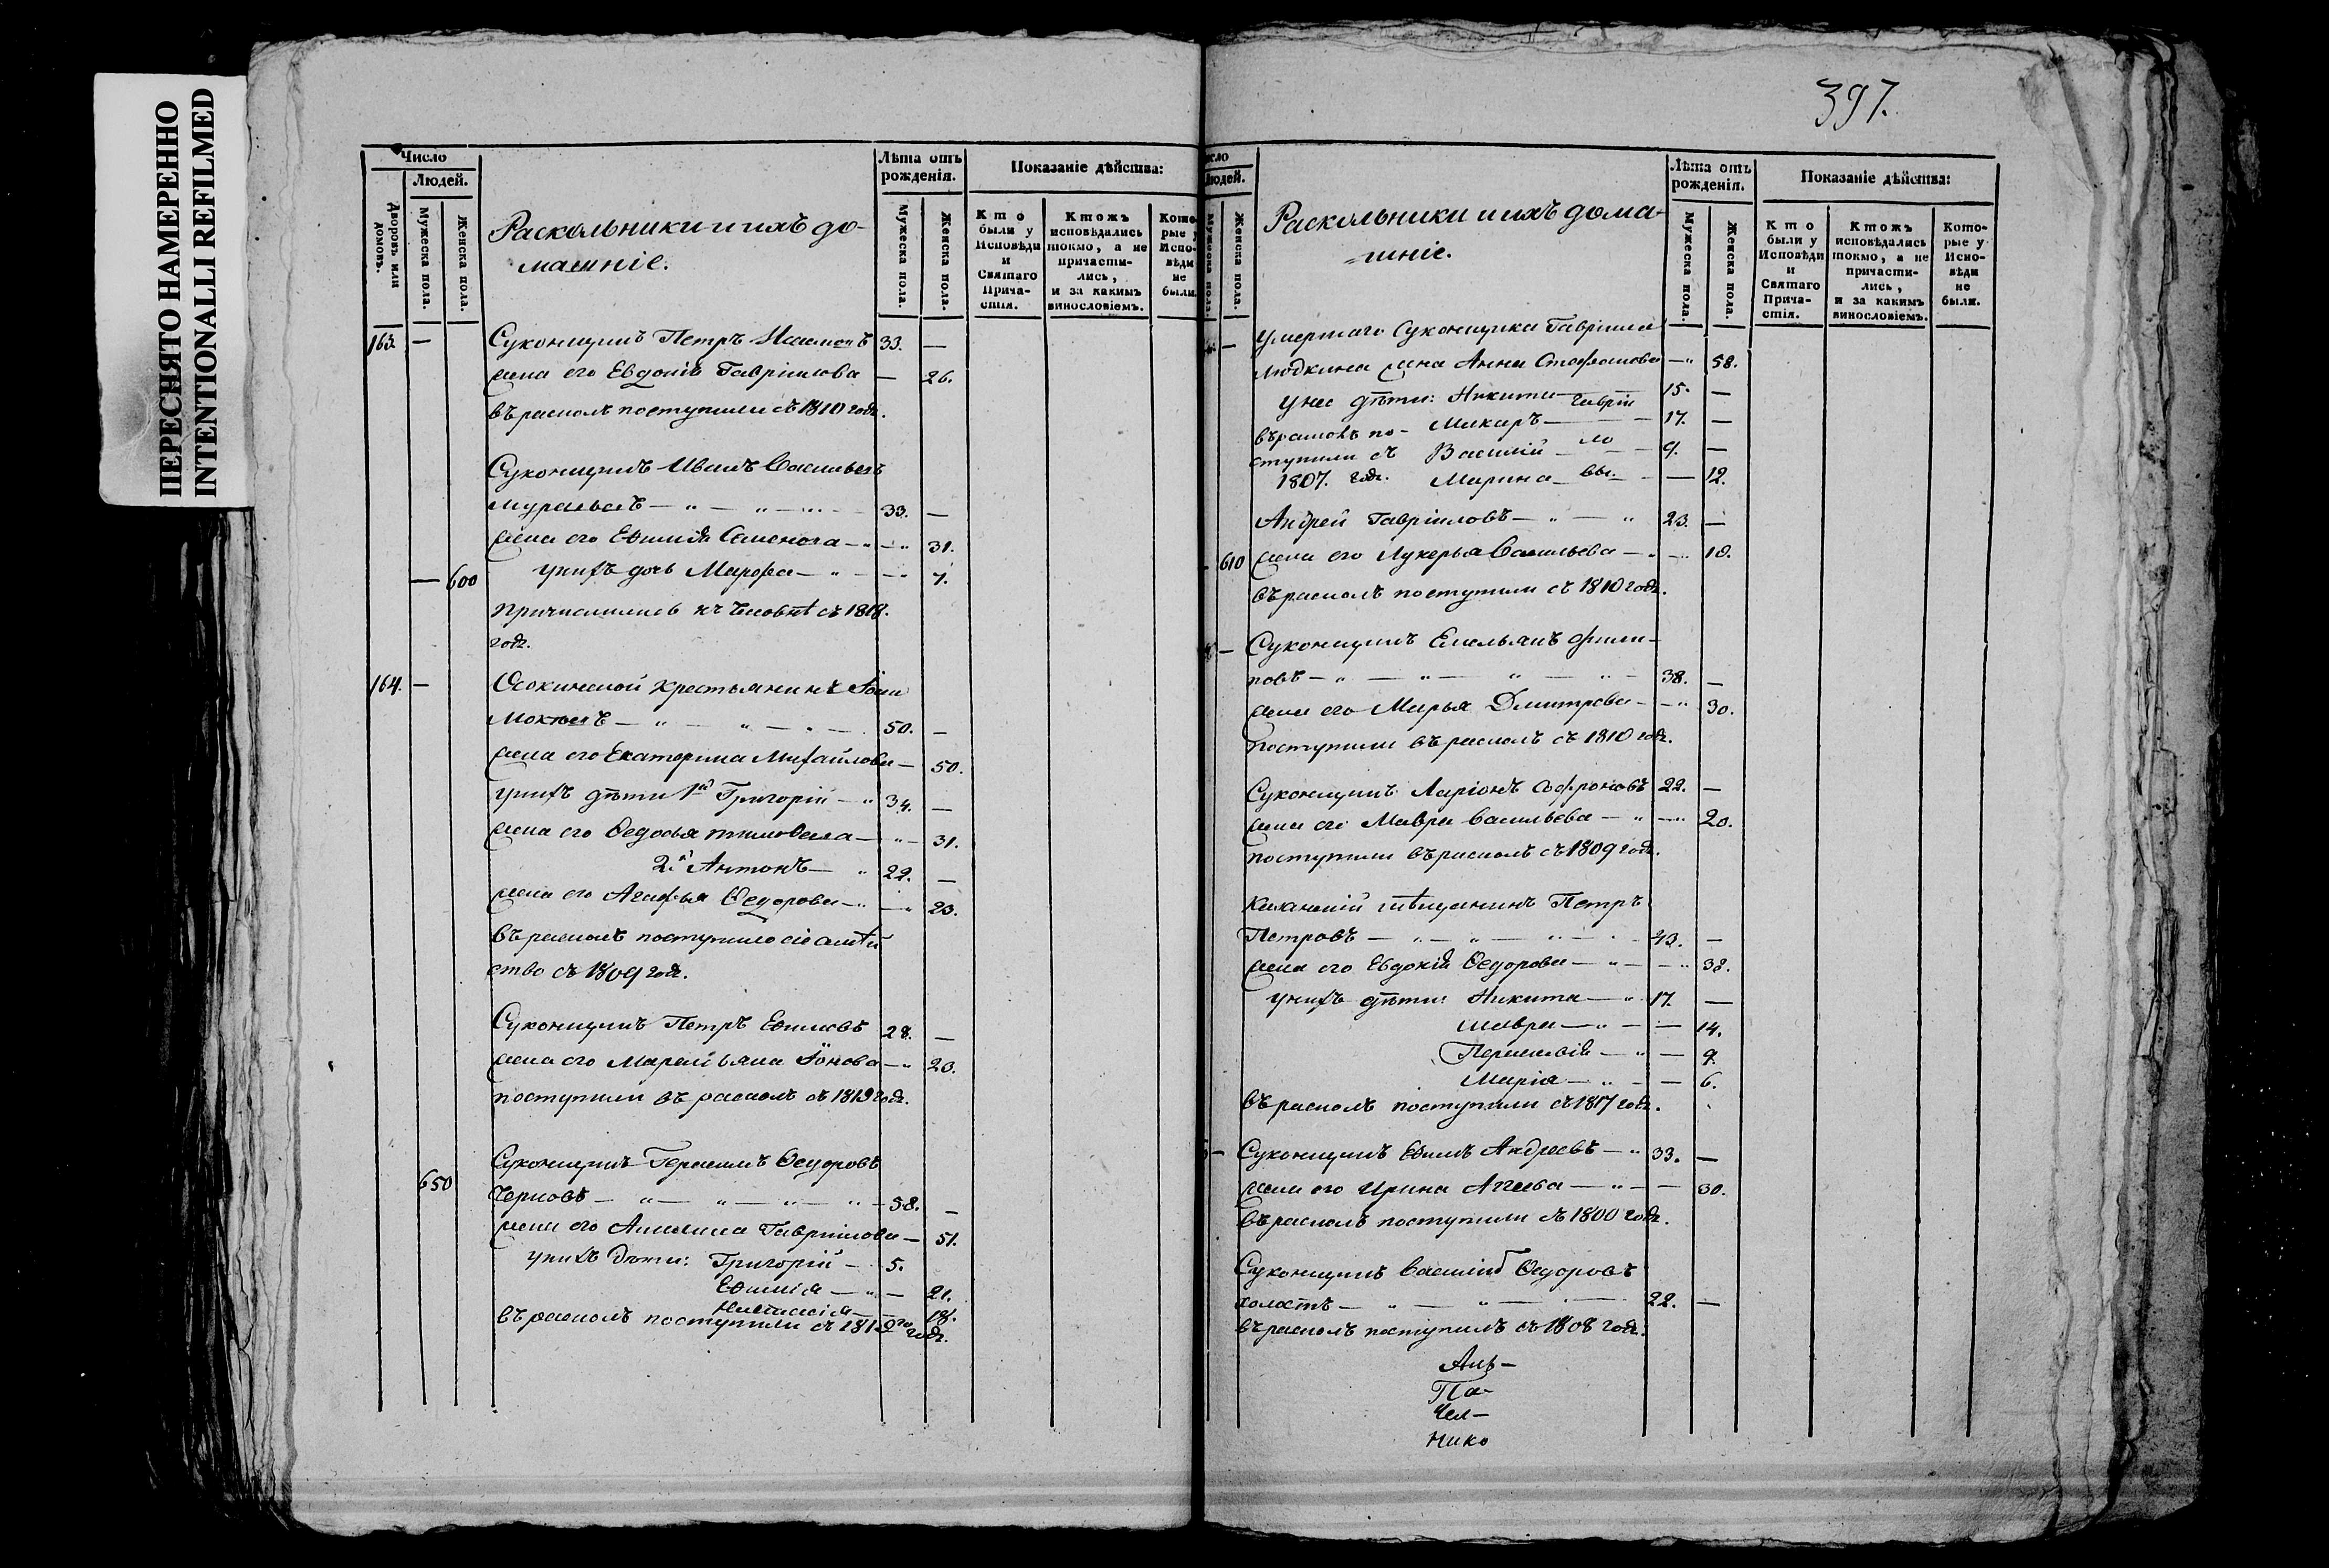 ПЕРЕСНЯТО НАМЕРЕННО
INTENTIONALLI REFILMED
397.
Число
Людей.
Дворовъ или домовъ.
Мужеска пола.
Женска пола.
Раскольники и ихъ до-
машніе.
Лѣта отъ рожденія.
Мужеска пола.
Женска пола.
Показаніе дѣйства:
Кто были у Исповѣди и Святаго Причастія.
Ктожъ исповѣдались токмо, а не причастились, и за какимъ винословіемъ.
163. —
Суконщикъ Петръ 33. —
жена его Евдокія Гавріилова — 26.
въ расколъ поступили съ 1810 года.
Суконщикъ Иванъ Васильевъ
Муравьевъ — 33. —
жена его Евфимія Семенова — 31.
— 600 у нихъ дочь Марфа — 7.
съ 1818.
года.
164. — крестьянинъ
50. —
жена его Екатерина Михайлова — 50.
у нихъ дѣти 1й Григорій — 34. —
жена его Ѳедосья — 31.
2й Антонъ — 22. —
жена его Агафья Ѳедорова — 23.
въ расколъ поступило сіе семѣй
ство съ 1809 года.
Суконщикъ Петръ Евфимовъ 28. —
жена его Іонова — 23.
поступили въ расколъ съ 1819 года.
Суконщикъ Герасимъ Ѳедоровъ
650 Черновъ — 58. —
жена его Гавріилова — 51.
у нихъ дѣти: Григорій — 5.
Евфимія — 21.
Настасія — 18.
въ расколъ поступили съ года.
Людей.
Женска пола.
Раскольники и ихъ дома-
шніе.
Лѣта отъ рожденія.
Мужеска пола.
Женска пола.
Показаніе дѣйства:
Кто были у Исповѣди и Святаго Причастія.
Ктожъ исповѣдались токмо, а не причастились, и за какимъ винословіемъ.
Которые у Исповѣди не были.
Умершаго Суконщика Гавріила
жена Анна Стефанова — 58.
у нее дѣти: Никита Гаврі 15. —
въ расколъ по- Макаръ — 17. —
ступили съ Василій ло 9. —
1807. года. Марина вы. — 12.
Андрей Гавріиловъ — 23. —
610 жена его Лукерья Васильева — 18.
въ расколъ поступили съ 1810 года.
Суконщикъ Емельянъ Фили-
повъ — 38. —
жена его Марья Дмитрева — 30.
поступили въ расколъ съ 1810 года.
Суконщикъ Ларіонъ Софроновъ 22. —
жена его Мавра Васильева — 20.
поступили въ расколъ съ 1809 года.
Казанскій мѣщанинъ Петръ
Петровъ — 43. —
жена его Евдокія Ѳедорова — 38.
у нихъ дѣти: Никита — 17. —
Мавра — 14.
— 9.
Марія — 6.
въ расколъ поступили съ 1817 года.
Суконщикъ Евфимъ Андреевъ — 33. —
жена его Ирина Аггеева — 30.
въ расколъ поступили съ 1800 года.
Суконщикъ Василій Ѳедоровъ
холостъ — 22. —
въ расколъ поступилъ съ 1808 года.
Па-
Чел-
Нико